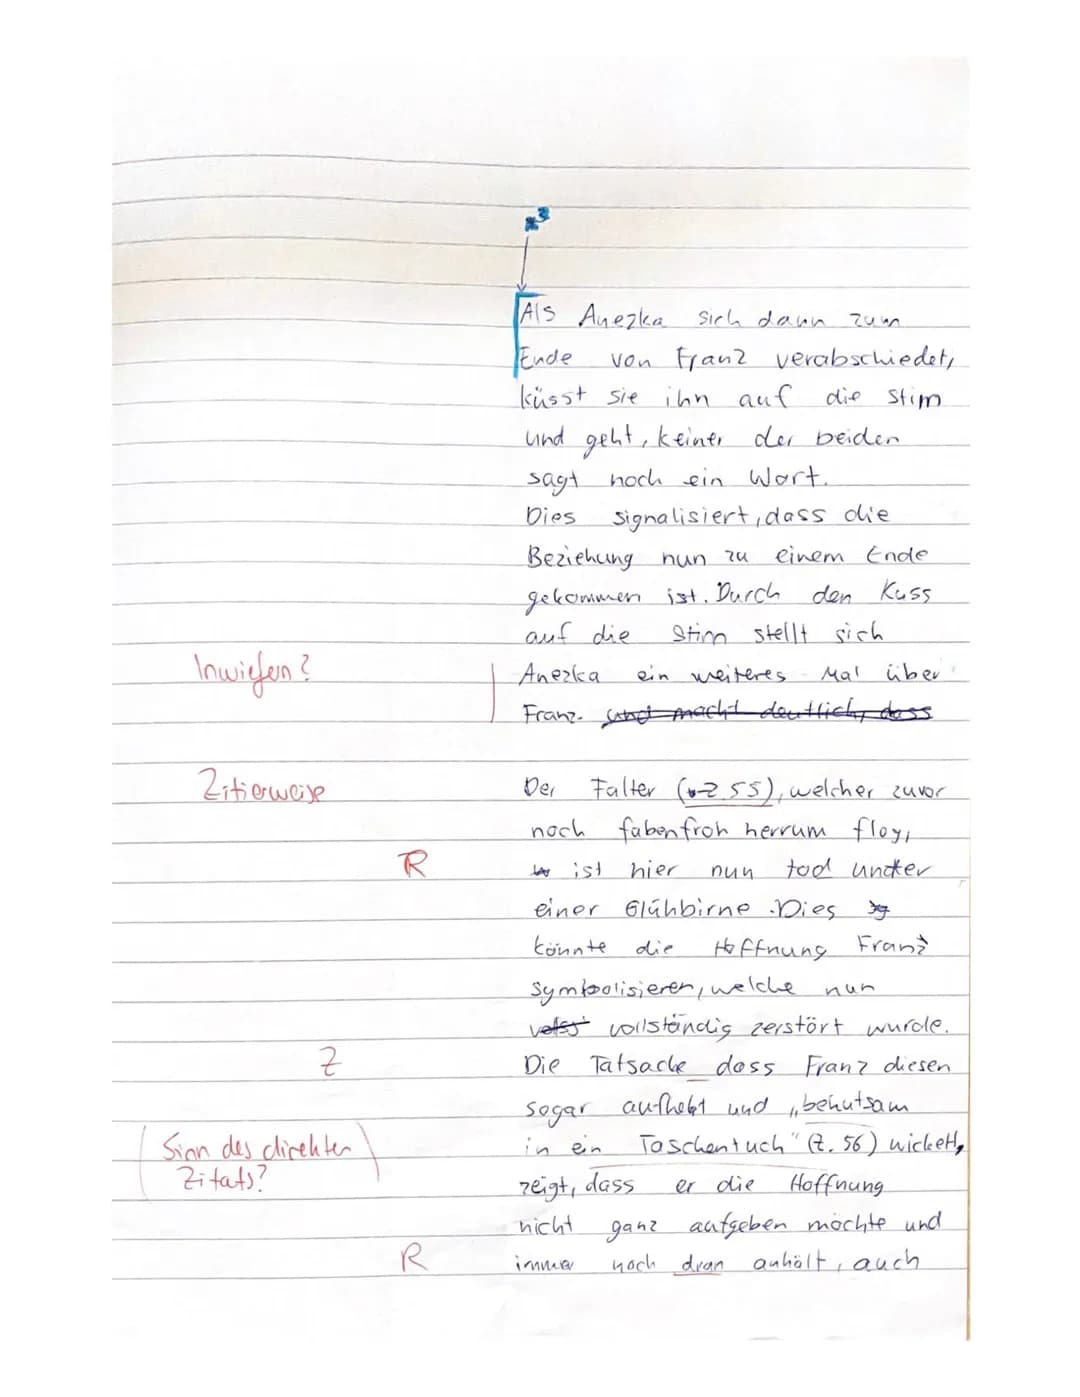 x3
Als Anezka sich dann zum
Ende von Franz verabschiedet,
küsst sie ihn auf die Stirn
und geht, keiner der beiden
sagt noch ein Wort.
Dies signalisiert, dass die
Beziehung nun zu einem Ende
gekommen ist. Durch den Kuss
auf die Stirn stellt sich
Inwiefern? Anezka ein weiteres Mal über
Franz. und macht deutlich, dass
Zitierweise Der Falter (Z 55), welcher zuvor
noch fabenfroh herrum flog,
R ist hier nun tod unter
einer Glühbirne. Dies
könnte die Hoffnung Franz
symbolisieren, welche nun
vollständig zerstört wurde.
Z Die Tatsache dass Franz diesen
sogar aufhebt und „behutsam
Sinn des direkten in ein Taschentuch" (Z. 56) wickelt,
Zitats? zeigt, dass er die Hoffnung
nicht ganz aufgeben möchte und
R immer noch dran anhält, auch